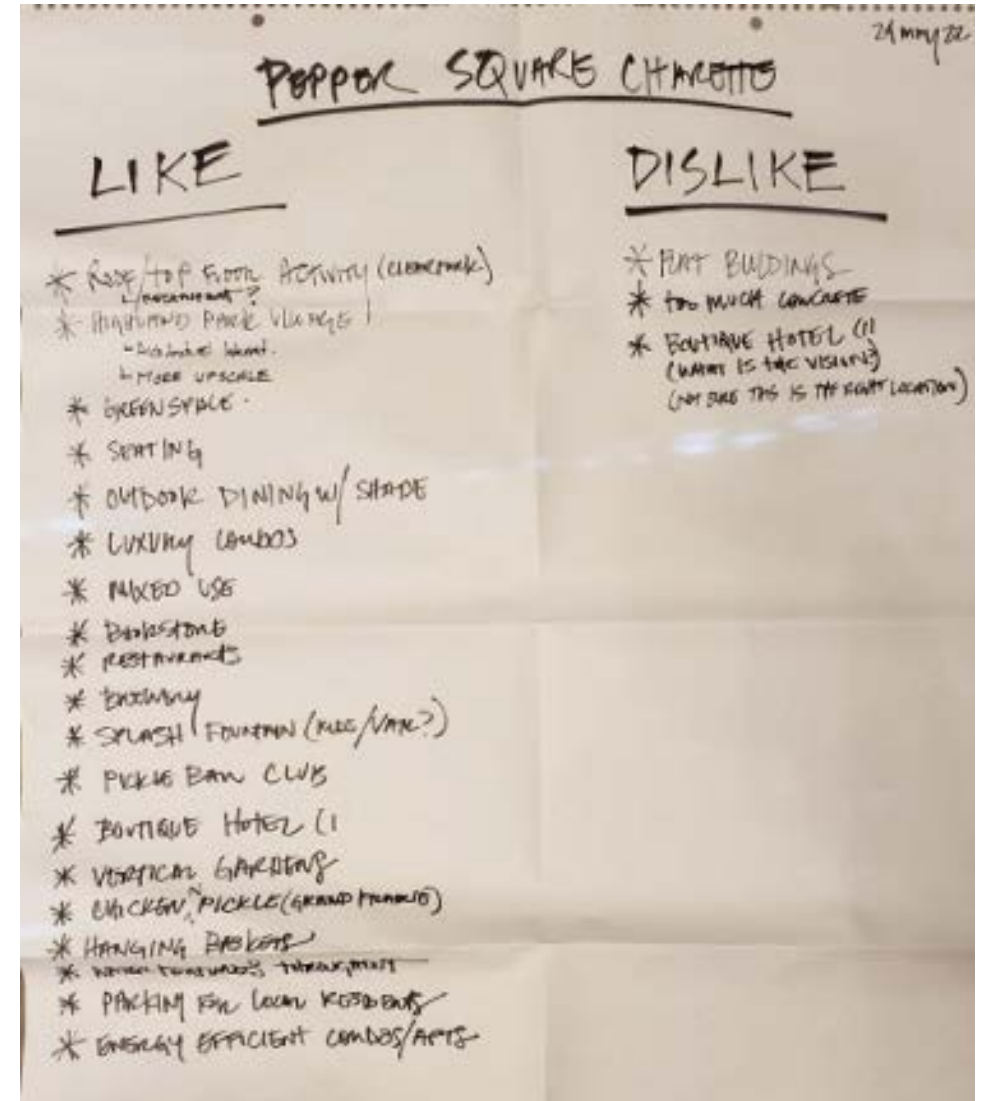 24 may 22
PEPPER SQUARE CHARETTE
LIKE
* ROOF/TOP FLOOR ACTIVITY
RESTAURANT?
* HIGHLAND PARK VILLAGE
- MORE UPSCALE
* GREENSPACE
* SEATING
* OUTDOOR DINING W/ SHADE
* LUXURY CONDOS
* MIXED USE
* BOOKSTORE
* RESTAURANTS
* BREWERY
* SPLASH FOUNTAIN
* PICKLE BALL CLUB
* BOUTIQUE HOTEL (1
* VERTICAL GARDENS
* CHICKEN N PICKLE (GRAND PRAIRIE)
* HANGING BASKETS
* WATER FEATURES THROUGHOUT
* PARKING FOR LOCAL RESIDENTS
* ENERGY EFFICIENT CONDOS/APTS
DISLIKE
* FLAT BUILDINGS
* TOO MUCH CONCRETE
* BOUTIQUE HOTEL (1)
(WHAT IS THE VISION?)
(NOT SURE THIS IS THE RIGHT LOCATION)